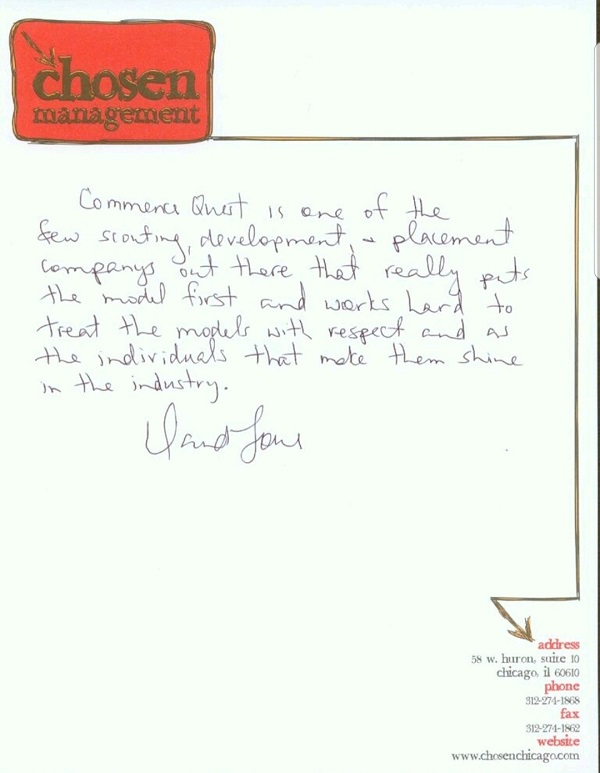 chosen
management
Commerce Quest is one of the
few scouting, development, + placement
companys out there that really puts
the model first and works hard to
treat the models with respect and as
the individuals that make them shine
in the industry.
address
58 w. huron, suite 10
chicago, il 60610
phone
312-274-1868
fax
312-274-1862
website
www.chosenchicago.com